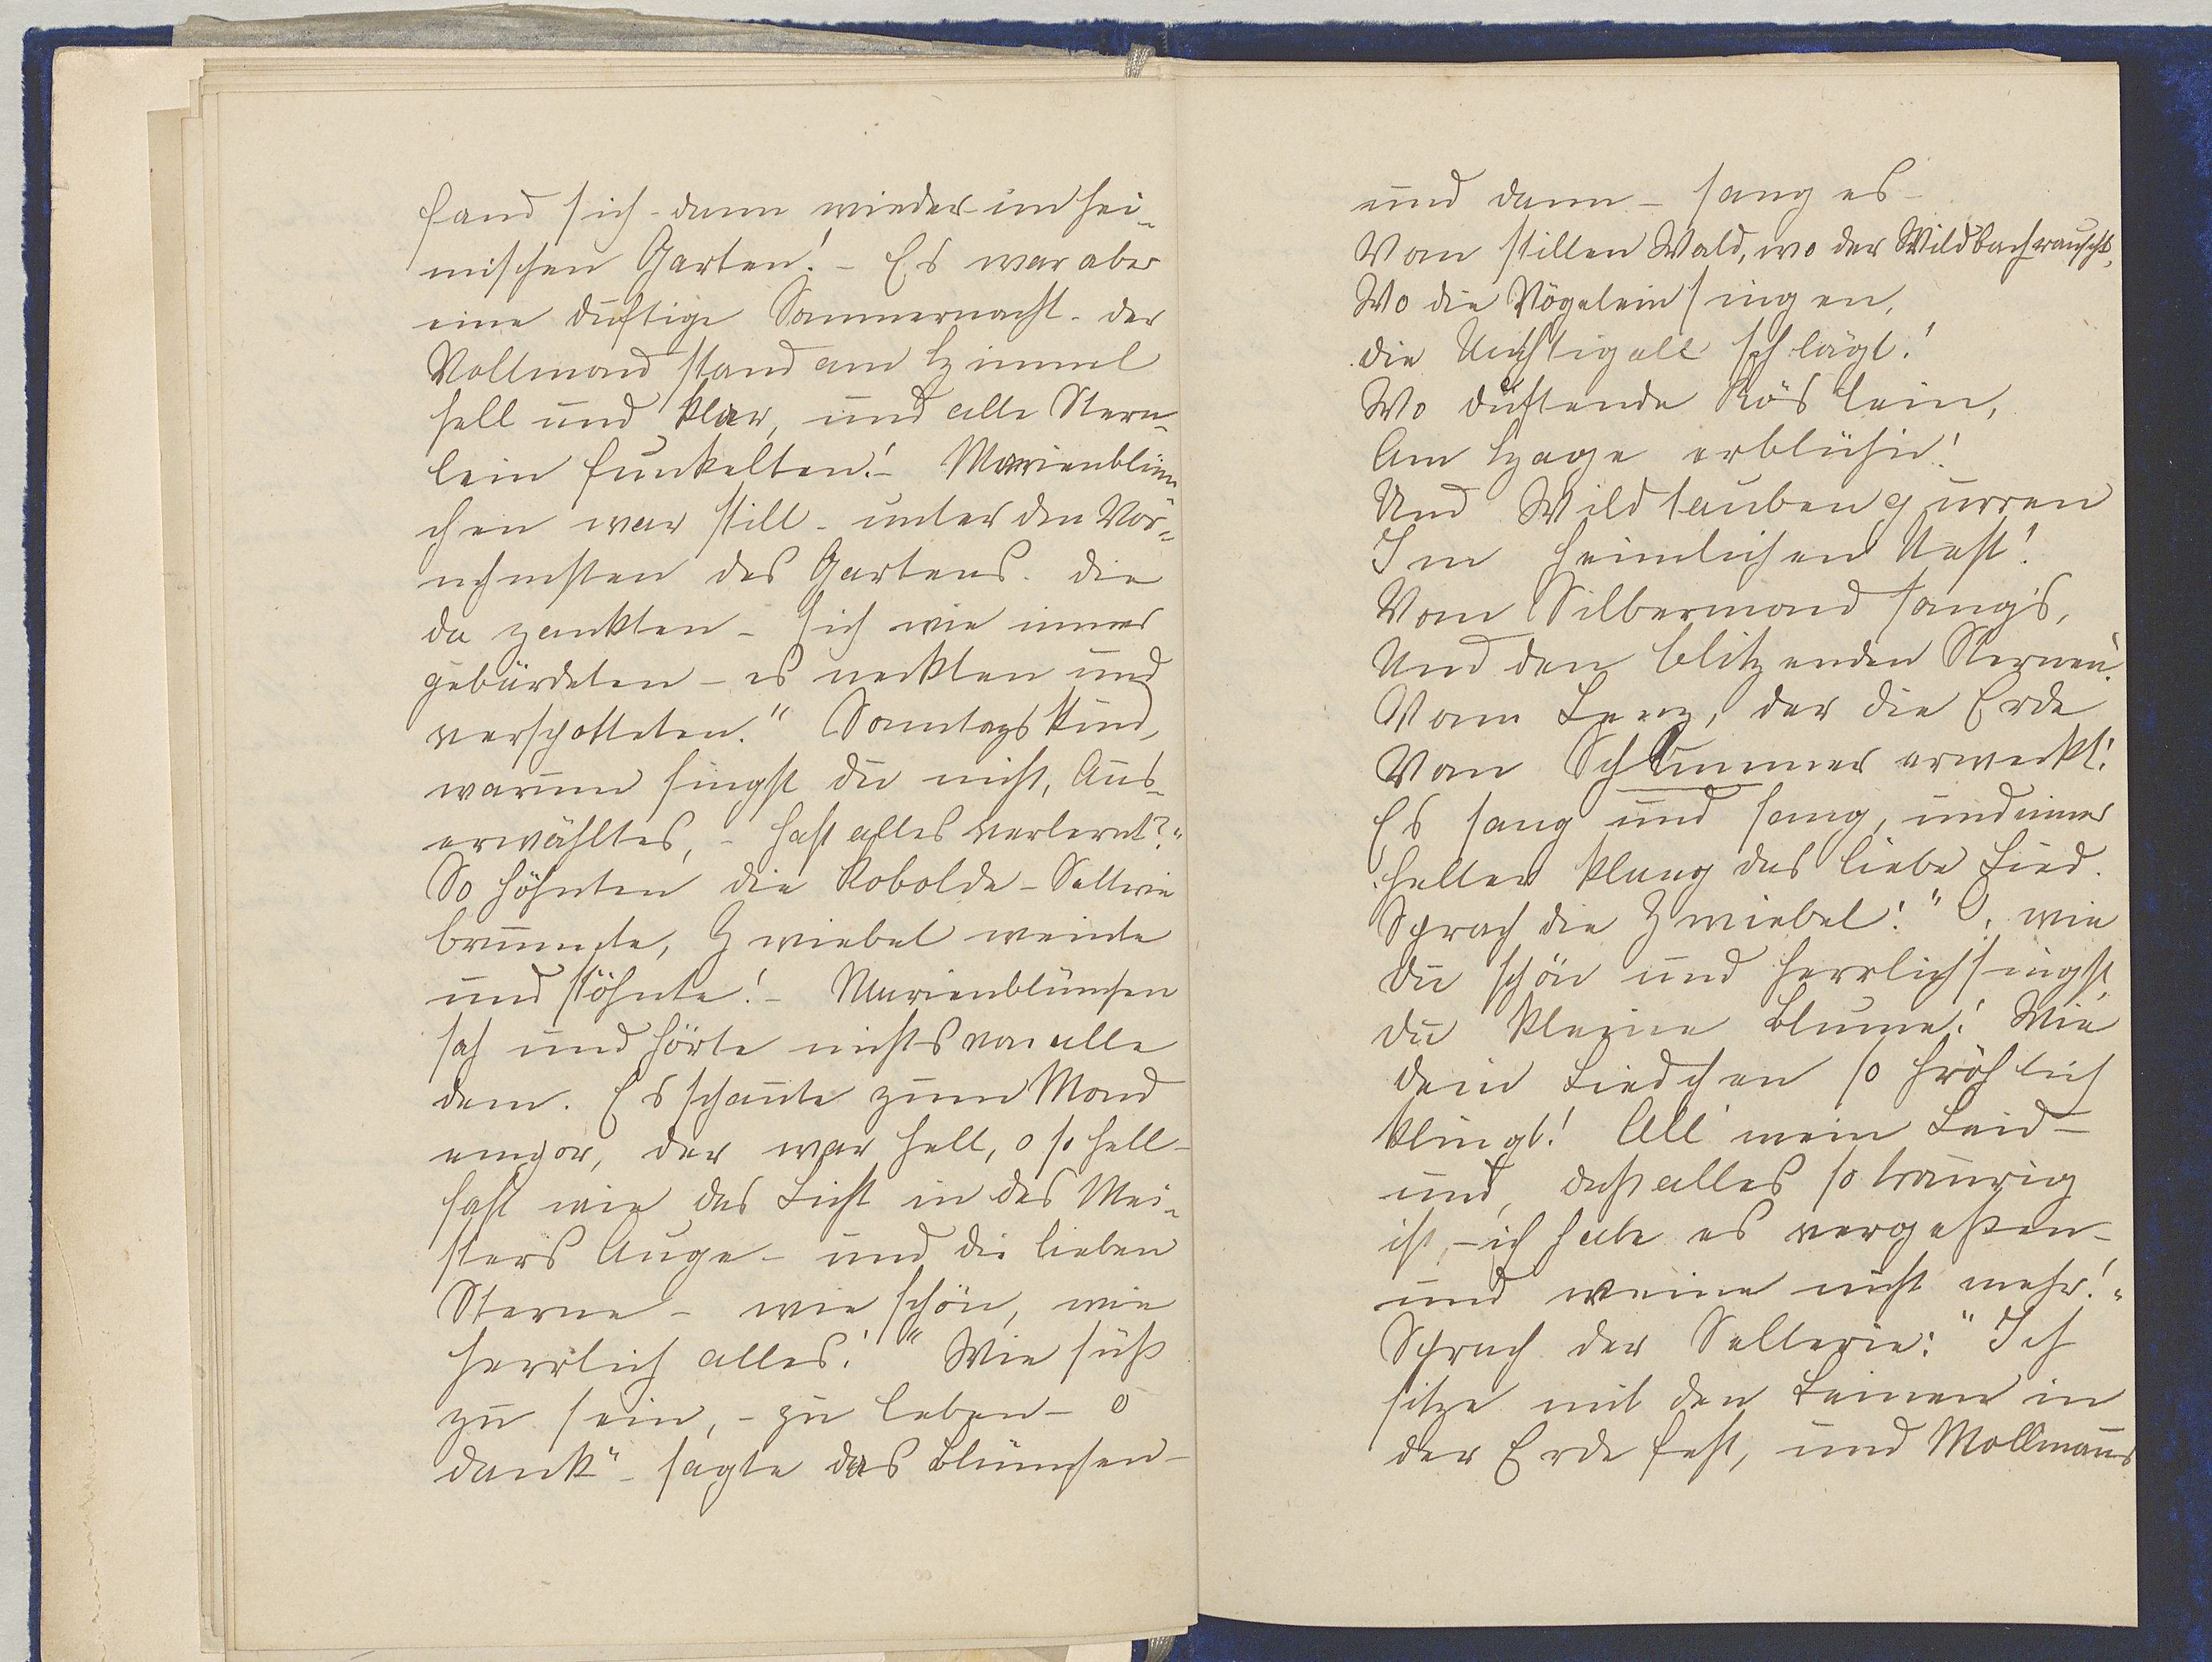 fand sich - dann wieder im hei-
mischen Garten! - Es war aber
eine duftige Sommernacht - der
Vollmond stand am Himmel
hell und klar, und alle Stern-
lein funkelten! - Marienblüm-
chen war still - unter den Vor-
nehmsten des Gartens. die
da zankten - sich wie immer
gebürdeten - es neckten und
verspotteten. "Sonntagskind,
warum singst du nicht, Aus-
erwähltes, - hast alles verlernt?"
So höhnten die Kobolde - Sellerie
brummte, Zwiebel weinte
und stöhnte! - Marienblümchen
sah und hörte nichts von alle
dem. Es schaute zum Mond
empor, der war hell, o so hell -
fast wie das Licht in des Mei-
sters Auge - und die lieben
Sterne - wie schön, wie
herrlich alles! "Wie süß
zu sein, - zu leben - o
dank" - sagte das Blümchen -
und dann - sang es -
Vom stillen Wald, wo der Wildbach rauscht,
Wo die Vögelein singen,
die Nachtigall schlägt!
Wo duftende Röslein,
Am Hage erblühn!
Und Wildtauben gurren
Im heimlichen Nest!
Vom Silbermond sang's,
Und den blitzenden Sternen!
Vom Lenz, der die Erde
Vom Schlummer erweckt!
Es sang und sang, und immer
heller klang das liebe Lied.
Sprach die Zwiebel: "O, wie
du schön und herrlich singst,
du kleine Blume! Wie
dein Liedchen so fröhlich
klingt! All' mein Leid -
und, daß alles so traurig
ist, - ich habe es vergeßen -
und weine nicht mehr!"
Sprach der Sellerie: "Ich
sitze mit den Beinen in
der Erde fest, und Mollmaus